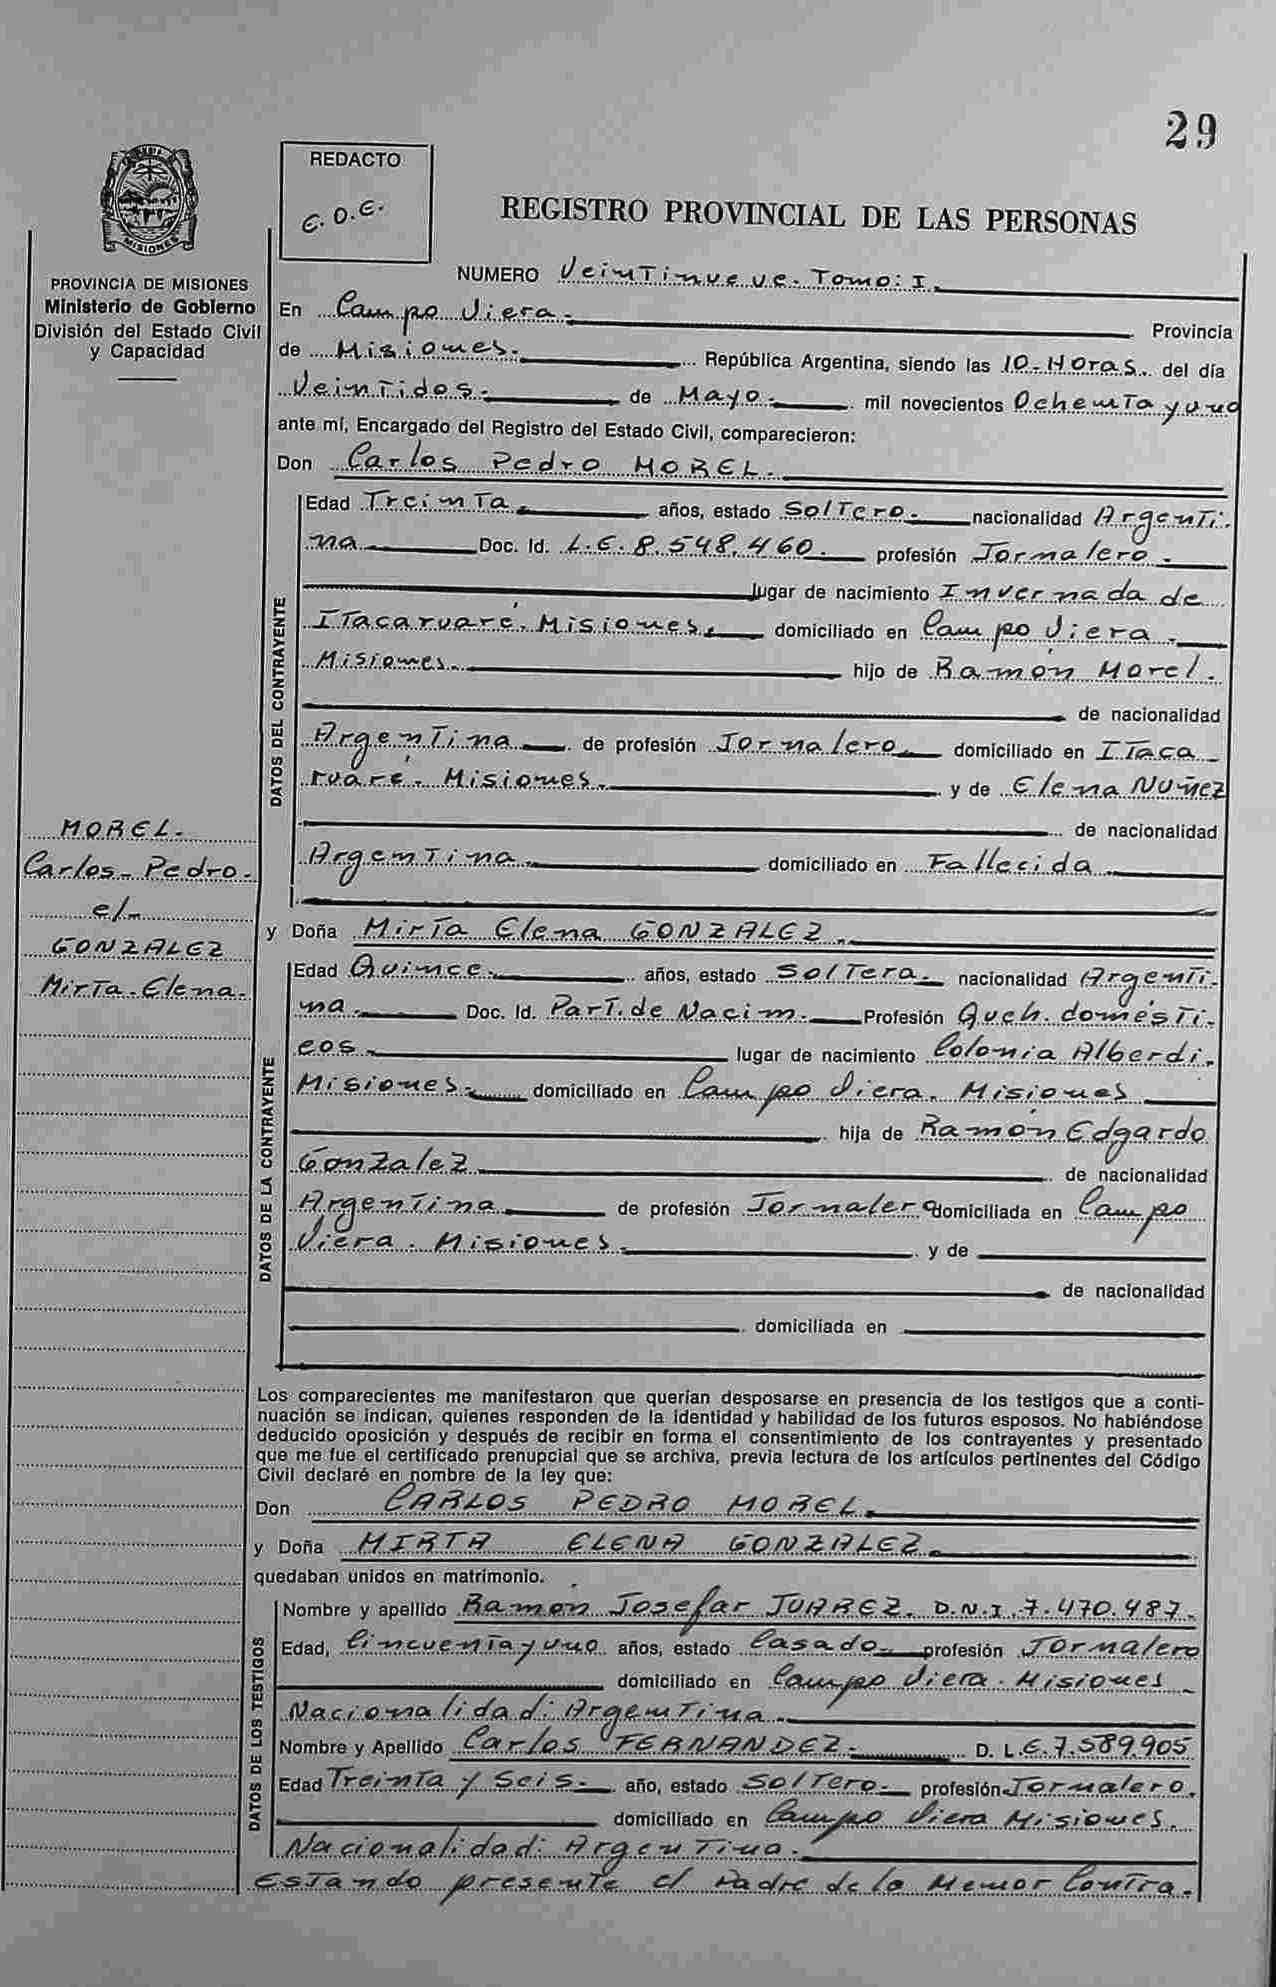 29
REDACTO
C.D.E.
REGISTRO PROVINCIAL DE LAS PERSONAS
MISIONES
PROVINCIA DE MISIONES
Ministerio de Gobierno
División del Estado Civil
y Capacidad
NUMERO Veintinueve. Tomo: I.
En Campo Viera. Provincia
de Misiones. República Argentina, siendo las 10. Horas. del día
Veintidos. de Mayo. mil novecientos Ochenta y uno
ante mí, Encargado del Registro del Estado Civil, comparecieron:
Don Carlos Pedro MOREL.
DATOS DEL CONTRAYENTE
Edad Treinta. años, estado Soltero. nacionalidad Argenti.
na Doc. Id. L.E. 8.548.460. profesión Jornalero.
lugar de nacimiento Invernada de
Itacaruaré. Misiones. domiciliado en Campo Viera.
Misiones. hijo de Ramón Morel.
de nacionalidad
Argentina de profesión Jornalero domiciliado en Itaca
ruaré. Misiones. y de Elena Nuñez
de nacionalidad
Argentina. domiciliado en Fallecida.
MOREL.
Carlos-Pedro.
c/.
GONZALEZ
Mirta-Elena.
y Doña Mirta Elena GONZALEZ.
DATOS DE LA CONTRAYENTE
Edad Quince. años, estado Soltera. nacionalidad Argenti.
na. Doc. Id. Part. de Nacim. Profesión Queh. domésti.
cos. lugar de nacimiento Colonia Alberdi.
Misiones. domiciliado en Campo Viera. Misiones
hija de Ramón Edgardo
Gonzalez de nacionalidad
Argentina de profesión Jornalero domiciliada en Campo
Viera. Misiones. y de
de nacionalidad
domiciliada en
Los comparecientes me manifestaron que querían desposarse en presencia de los testigos que a conti-
nuación se indican, quienes responden de la identidad y habilidad de los futuros esposos. No habiéndose
deducido oposición y después de recibir en forma el consentimiento de los contrayentes y presentado
que me fue el certificado prenupcial que se archiva, previa lectura de los artículos pertinentes del Código
Civil declaré en nombre de la ley que:
Don CARLOS PEDRO MOREL.
y Doña MIRTA ELENA GONZALEZ.
quedaban unidos en matrimonio.
DATOS DE LOS TESTIGOS
Nombre y apellido Ramón Josefar JUAREZ. D.N.I. 7.470.487.
Edad, Cincuenta y uno años, estado Casado. profesión Jornalero
domiciliado en Campo Viera. Misiones
Nacionalidad: Argentina.
Nombre y Apellido Carlos FERNANDEZ. D. L.E. 7.589.905
Edad Treinta y Seis. año, estado Soltero. profesión Jornalero.
domiciliado en Campo Viera Misiones.
Nacionalidad: Argentina.
Estando presente el Padre de la Menor Contra.